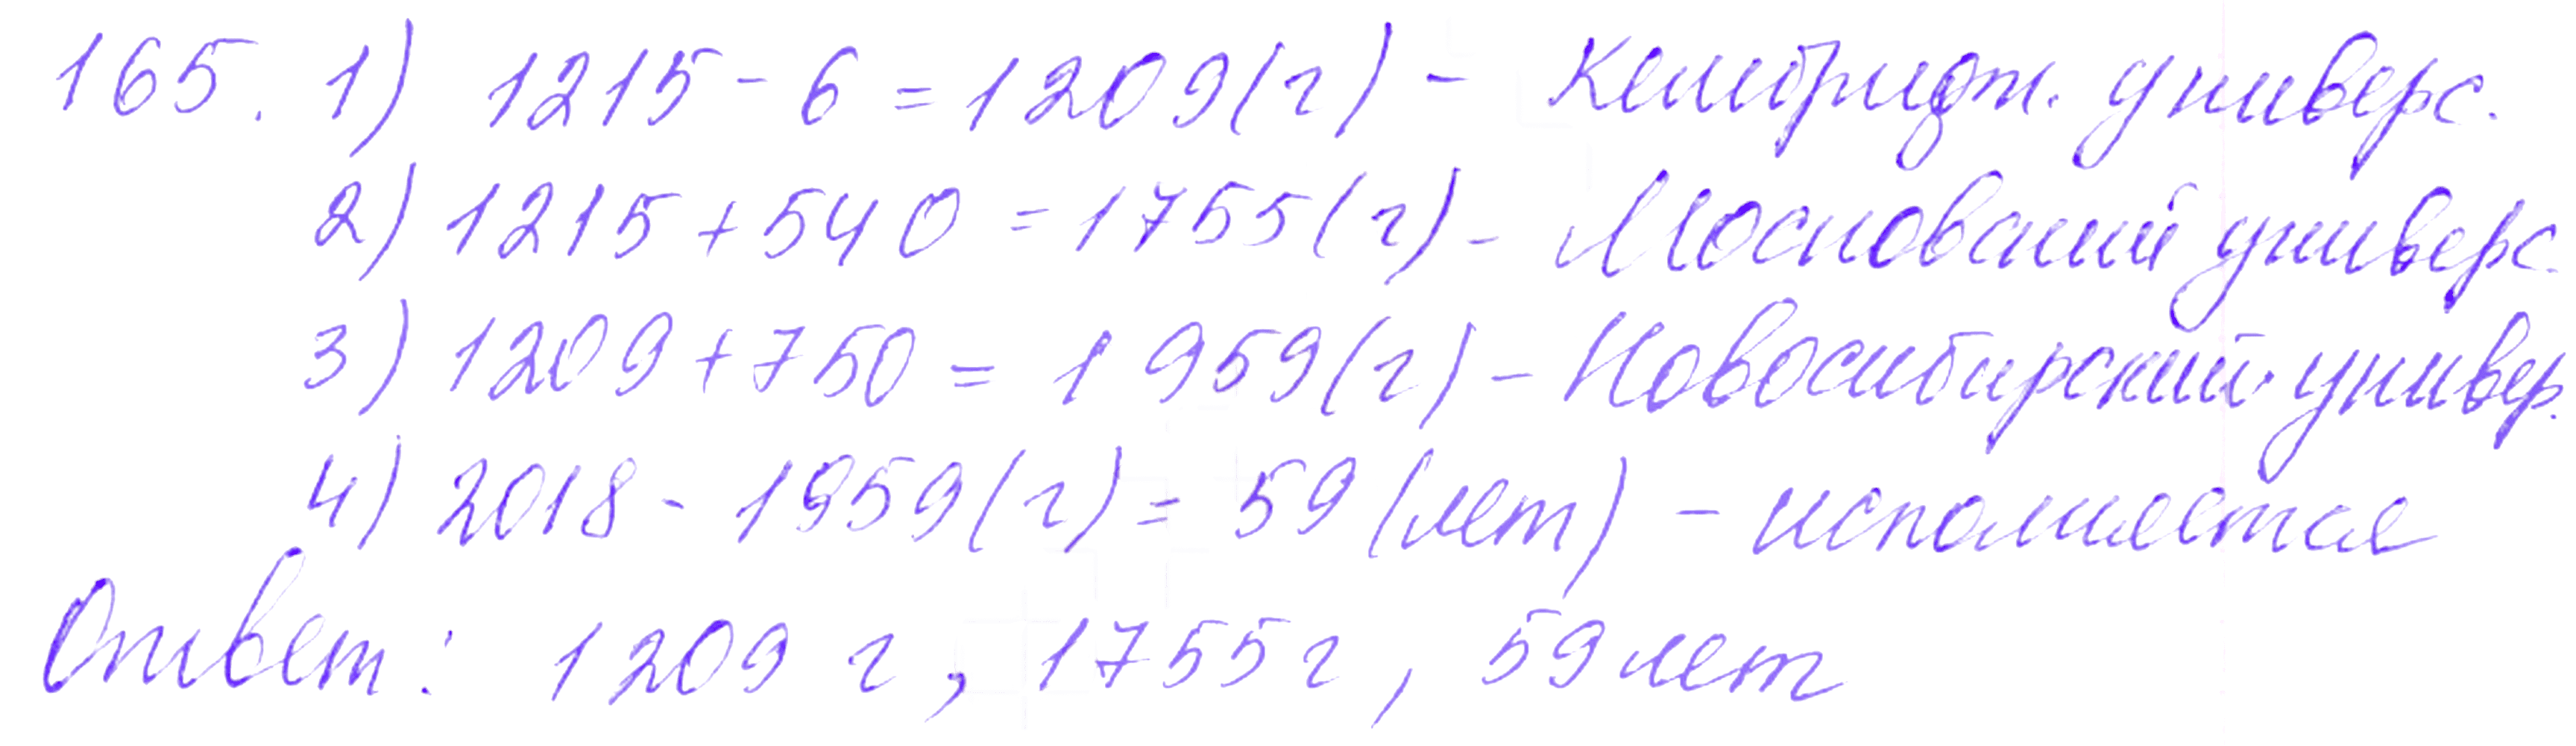 165. 1) 1215 - 6 = 1209(г) - Кембридж. универс.
2) 1215 + 540 = 1755(г) - Московский универс.
3) 1209 + 750 = 1959(г) - Новосибирский универ.
4) 2018 - 1959(г) = 59 (лет) - исполнится
Ответ: 1209 г, 1755 г, 59 лет